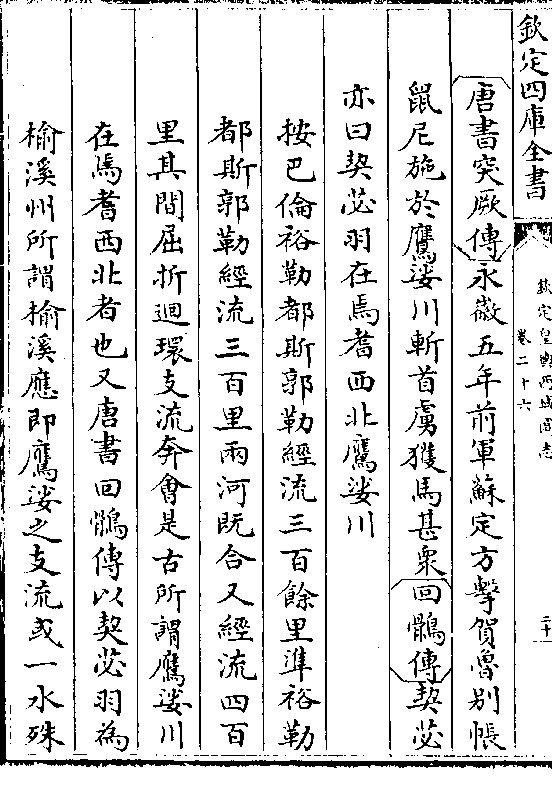 欽定四庫全書
欽定皇輿西域圖志
卷二十六
二十
唐書突厥傳永徽五年前軍蘇定方擊賀魯别帳
鼠尼施於鷹娑川斬首虜獲馬甚衆回鶻傳契苾
亦曰契苾羽在焉耆西北鷹娑川
按巴倫裕勒都斯郭勒經流三百餘里準裕勒
都斯郭勒經流三百里兩河既合又經流四百
里其間屈折迴環支流奔會是古所謂鷹娑川
在焉耆西北者也又唐書回鶻傳以契苾羽為
榆溪州所謂榆溪應即鷹娑之支流或一水殊